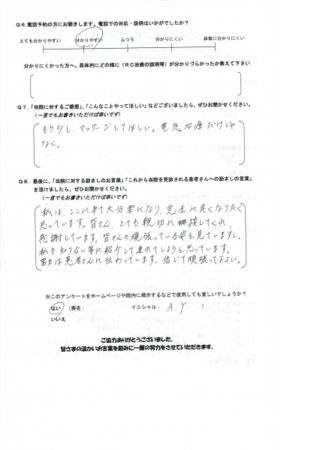 Q6.電話予約の方にお聞きします。電話での対応・説明はいかがでしたか?
とても分かりやすい 分かりやすい ふつう 分かりにくい 非常に分かりにくい
分かりにくかった方へ、具体的にどの様に(RC治療の説明等)が分かりづらかったか教えて下さい
Q7.「当院に対するご感想」、「こんなことやってほしい」などございましたら、ぜひお聞かせください。
(一言でもお書きいただければ幸いです)
もう少し、マッサージしてほしい。電気治療だけじゃ
なく。
Q8.最後に、「当院に対する励ましのお言葉」「これから当院を受診される患者さんへの励ましの言葉」
を頂けましたら、ぜひお聞かせください。
(一言でもお書きいただければ幸いです)
私は、ここに来て大分楽になり、完全に良くなりたく
思っています。皆さん、とても親切に挨拶してくれ、
感謝しています。皆さんの頑張っている姿を見ていますし、
私も知り合い等に紹介して連れてこようと思っています。
努力は患者さんに伝わっています。信じて頑張って下さい。
※このアンケートをホームページや院内に掲示するなどで使用しても宜しいでしょうか?
はい (実名: イニシャル: A.Y )
いいえ
ご協力ありがとうございました。
皆さまの温かいお言葉を励みに一層の努力をさせていただきます。